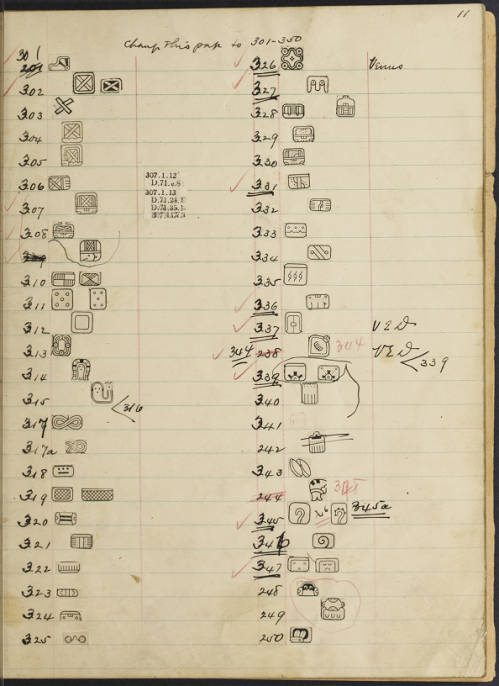 11
Change this page to 301-350
301
302
303
304
305
306
307
308
310
311
312
313
314
315
<316
317
317a
318
319
320
321
322
323
324
325
307.1.12
D.71.c.8
307.1.13
326 Venus
327
328
329
330
331
332
333
334
335
336
337 VED
344 238 344 VED
<339
339
340
341
242
343
244 345
345 345a
346
347
248
249
250